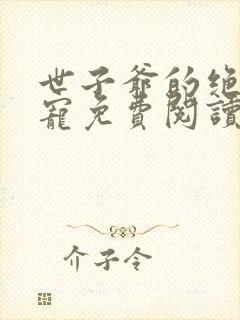 世子爷的绝
寵免費閱讀
介子令